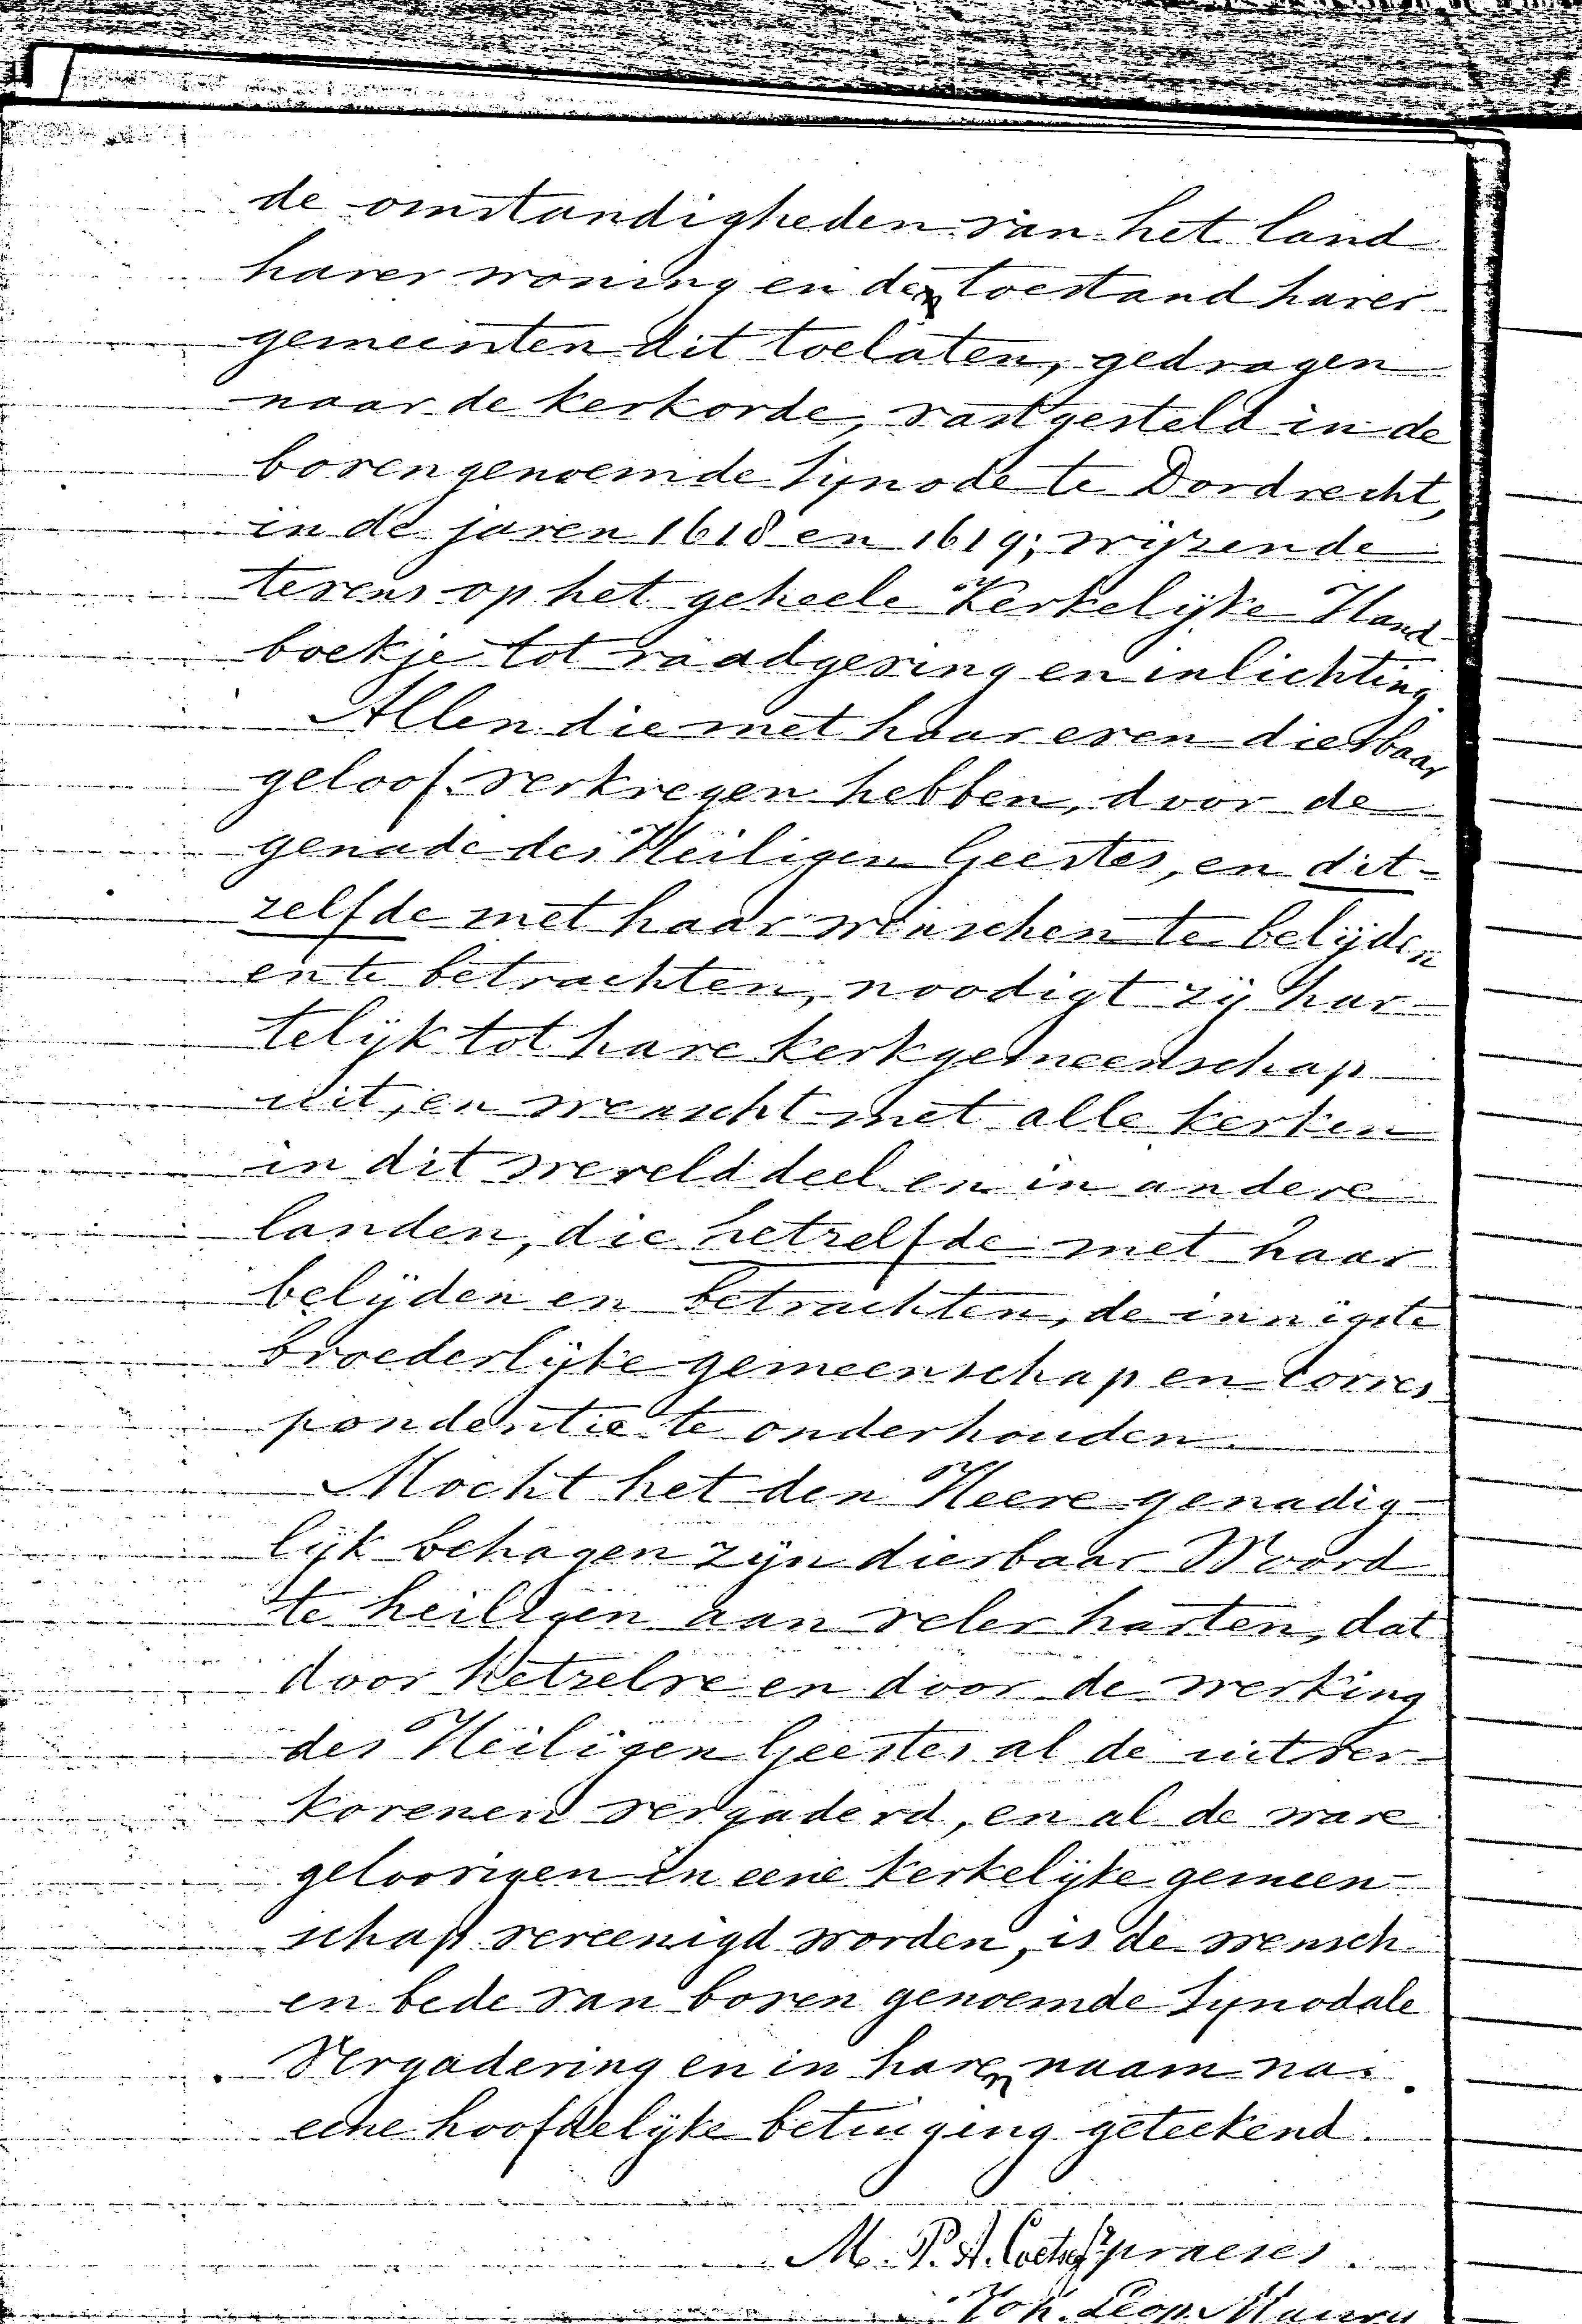 de omstandigheden van het land
harer woning en den toestand harer
gemeenten dit toelaten, gedragen
naar de kerkorde, vastgesteld in de
bovengenoemde Synode te Dordrecht,
in de jaren 1618 en 1619; wijzende
tevens op het geheele Kerkelijke Hand-
boekje tot raadgeving en inlichting.
Allen die met haar even dierbaar
geloof verkregen hebben, door de
genade des Heiligen Geestes, en dit-
zelfde met haar wenschen te belijden
en te betrachten, noodigt zij har-
telijk tot hare kerkgemeenschap
uit, en wenscht met alle kerken
in dit werelddeel en in andere
landen, die hetzelfde met haar
belijden en betrachten, de innigste
broederlijke gemeenschap en corres
pondentie te onderhouden.
Mocht het den Heere genadig-
lijk behagen zijn dierbaar Woord
te heiligen aan veler harten, dat
door hetzelve en door de werking
des Heiligen Geestes al de uitver-
korenen vergaderd, en al de ware
geloovigen in eene kerkelijke gemeen-
schap vereenigd worden, is de wensch
en bede van boven genoemde Synodale
Vergadering en in haren naam na
eene hoofdelijke betuiging geteekend.
M. P. A. Coetsee praeses.
Joh. Leop. Maury